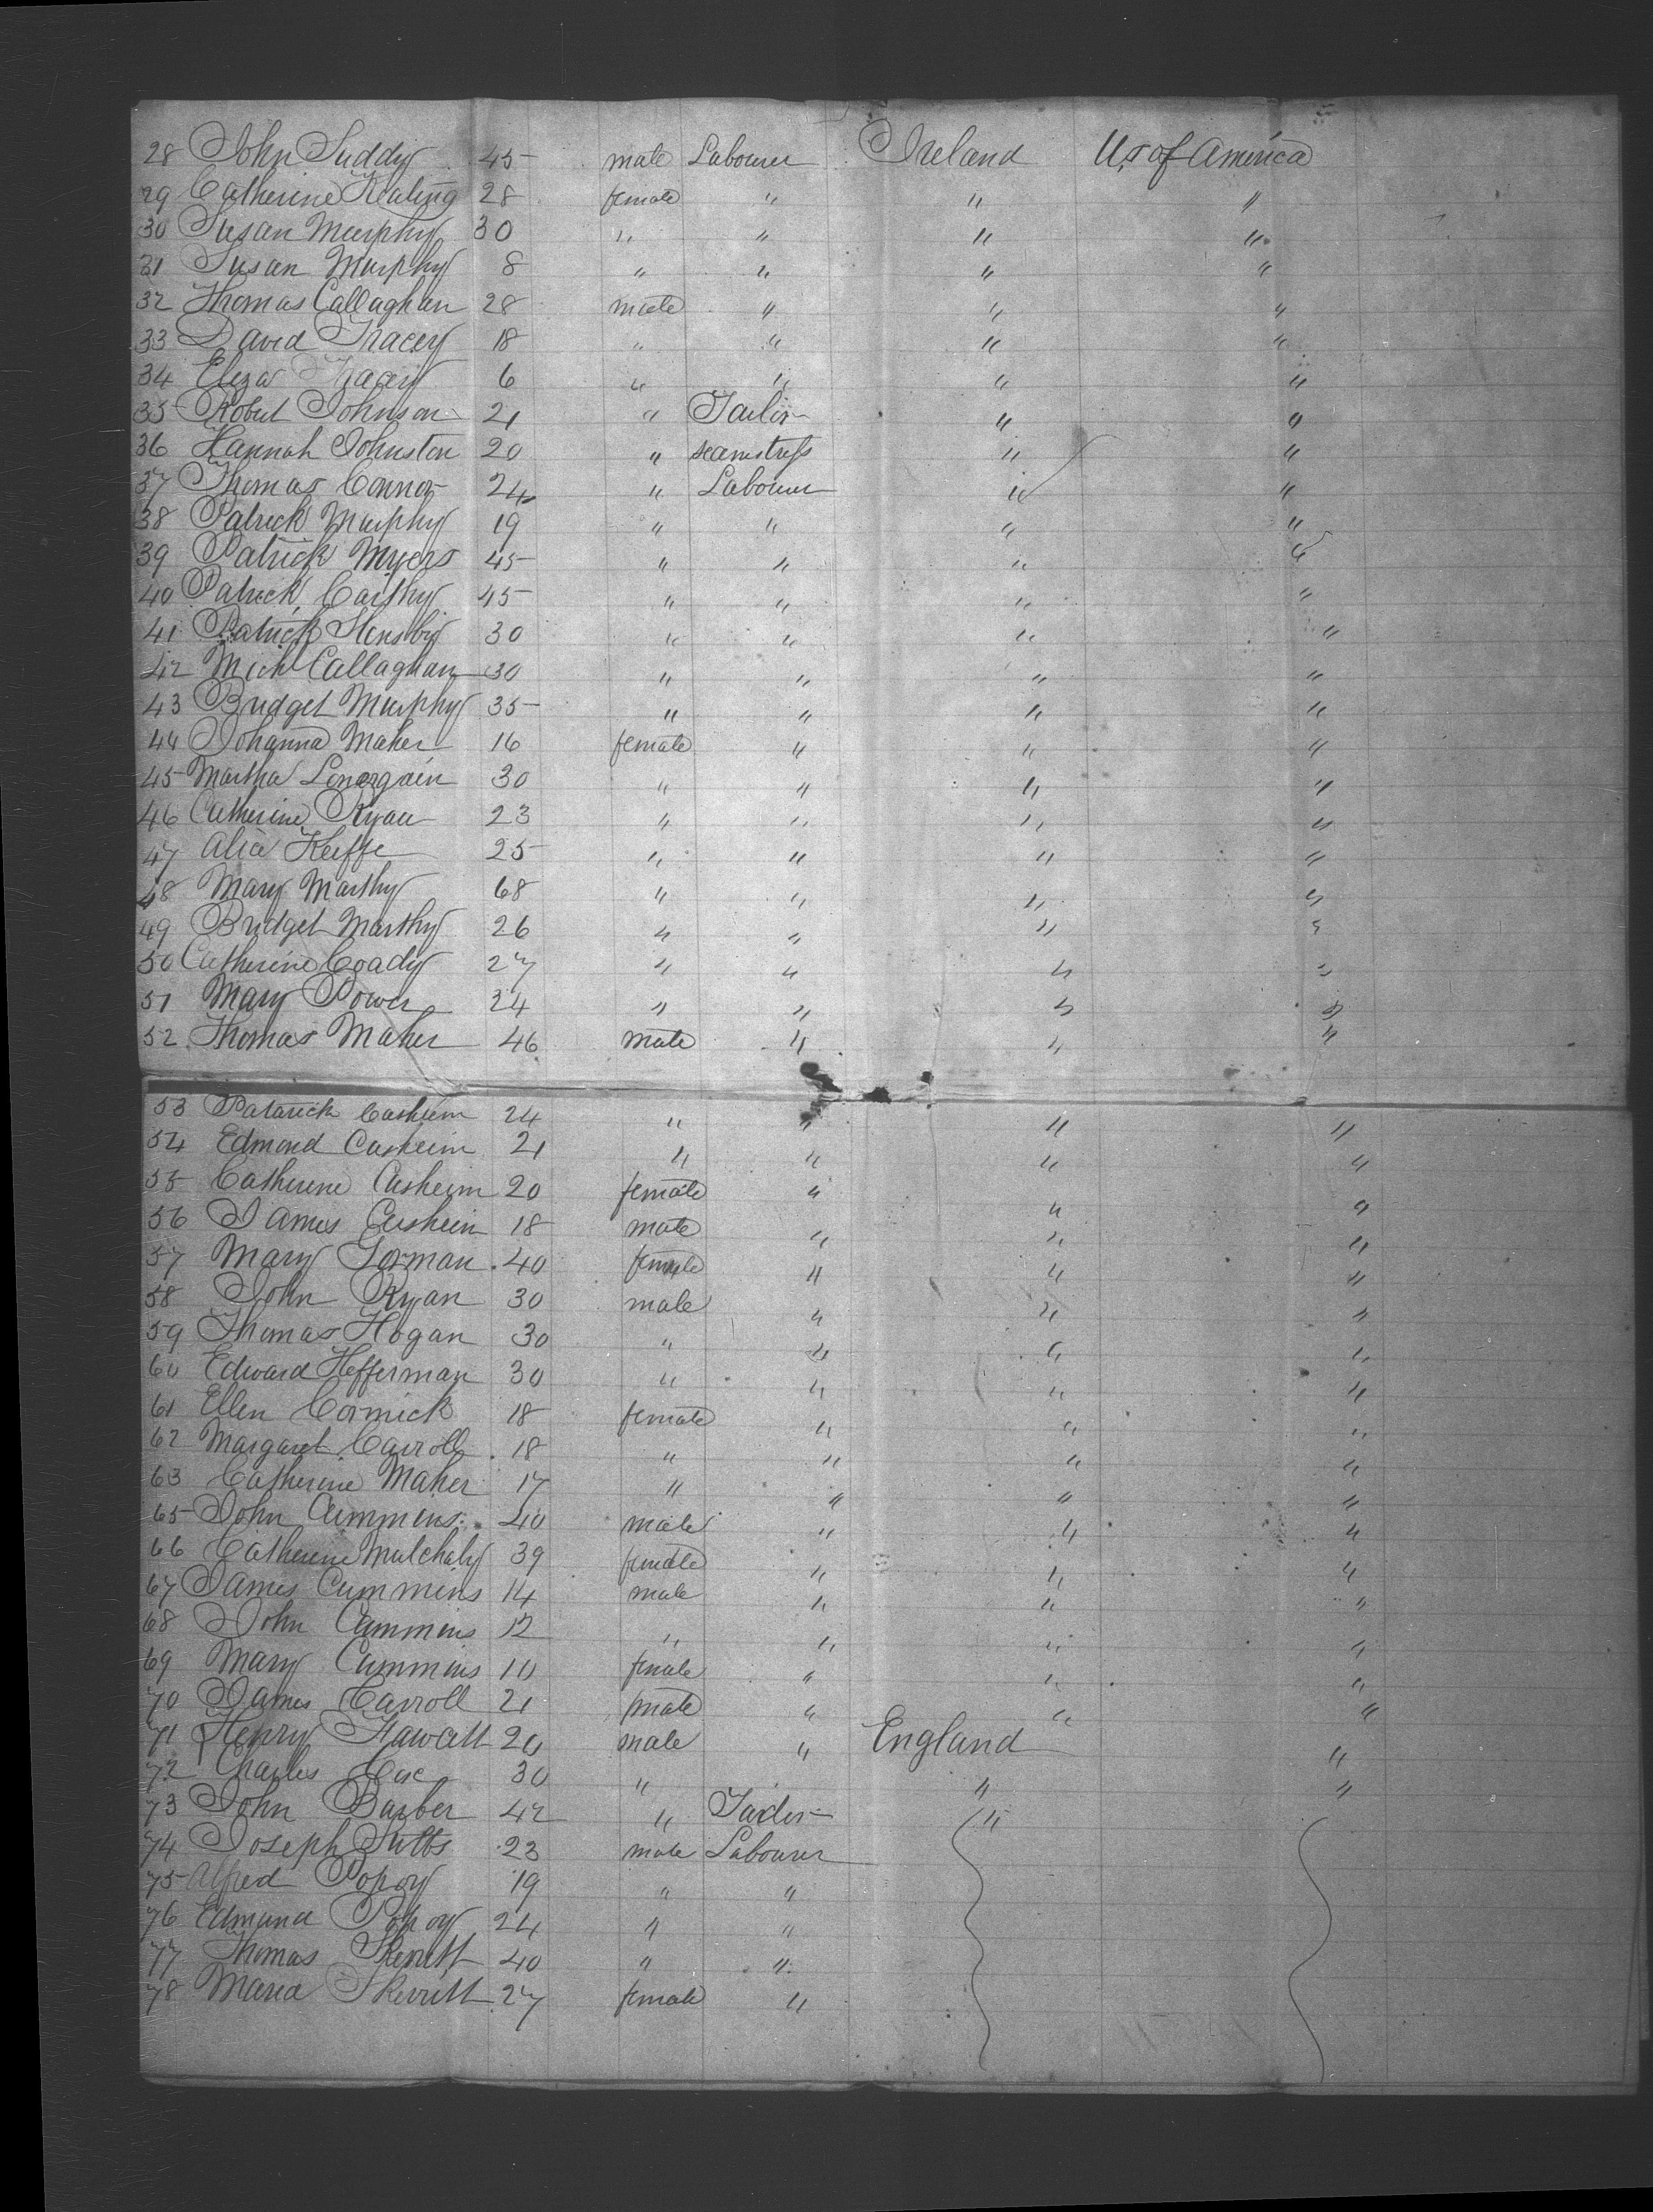 28 John Suddy 45 male Labourer Ireland U.S of America
29 Catherine Keating 28 female " " "
30 Susan Murphy 30 " " " "
31 Susan Murphy 8 " " " "
32 Thomas Callaghan 28 male " " "
33 David Tracey 18 " " " "
34 Eliza Tracey 6 " " " "
35 Robert Johnson 21 " Tailor " "
36 Hannah Johnston 20 " seamstress " "
37 Thomas Connor 24 " Labourer " "
38 Patrick Murphy 19 " " " "
39 Patrick Myers 45 " " " "
40 Patrick Carthy 45 " " " "
41 Patrick Hensby 30 " " " "
42 Mich Callaghan 30 " " " "
43 Bridget Murphy 35 " " " "
44 Johanna Maher 16 female " " "
45 Martha Lonargain 30 " " " "
46 Catherine Ryan 23 " " " "
47 Alice Keiffe 25 " " " "
48 Mary Marthy 68 " " " "
49 Bridget Marthy 26 " " " "
50 Catherine Coady 27 " " " "
51 Mary Power 24 " " " "
52 Thomas Maher 46 male " " "
53 Patarick 24 " " " "
54 Edmond Casheim 21 " " " "
55 Catherene Casheim 20 female " " "
56 James 18 male " " "
57 Mary Gorman 40 female " " "
58 John Ryan 30 male " " "
59 Thomas Hogan 30 " " " "
60 Edward Hefferman 30 " " " "
61 Ellen Cormick 18 female " " "
62 Margaret Carroll 18 " " " "
63 Catherine Maher 17 " " " "
65 John Cummins 40 male " " "
66 Catherine Mulchaly 39 female " " "
67 James Cummins 14 male " " "
68 John Cummins 12 " " " "
69 Mary Cummins 10 female " " "
70 James Carroll 21 male " " "
71 Henry Fawcett 20 male " England "
72 Charles 30 " " "
73 John Barber 42 " Tailor "
74 Joseph 23 male Labourer
75 Alfred Popoy 19 " "
76 Edmund Popoy 24 " "
77 Thomas Skerritt 40 " "
78 Maria Skerritt 27 female "